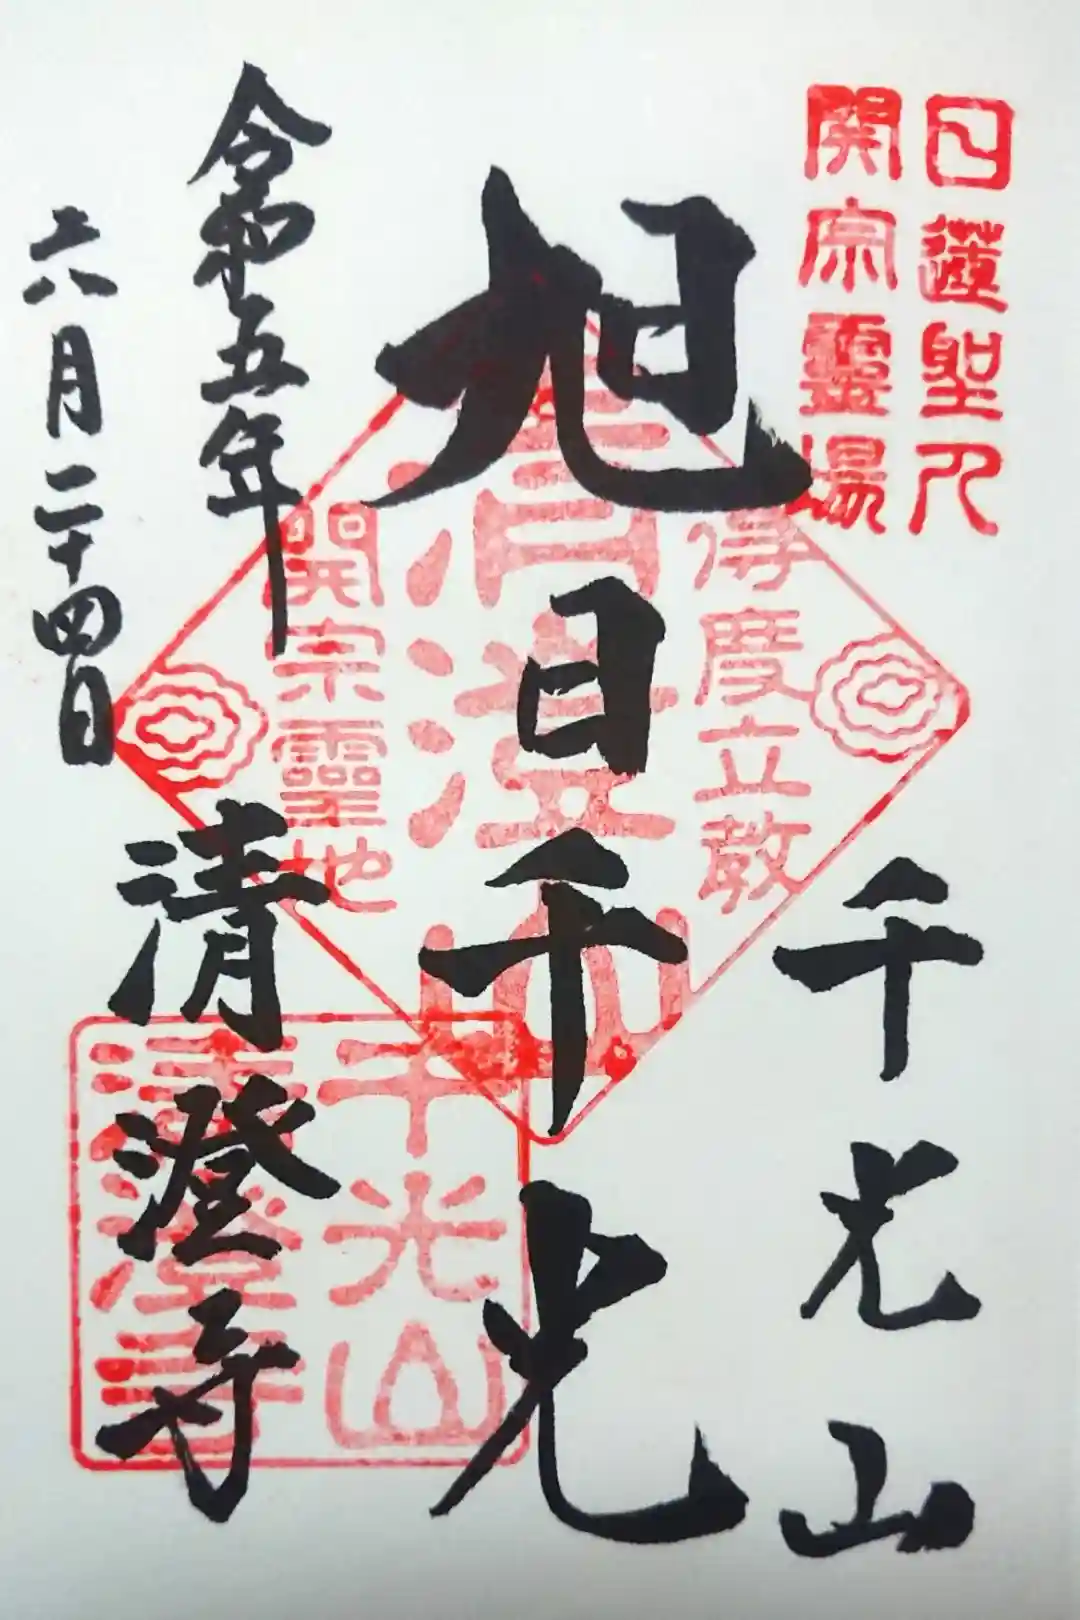 日蓮聖人
開宗靈場
千光山
旭日千光
得度立教
清澄山
開宗霊地
令和五年
六月二十四日
清澄寺
千光山
清澄寺